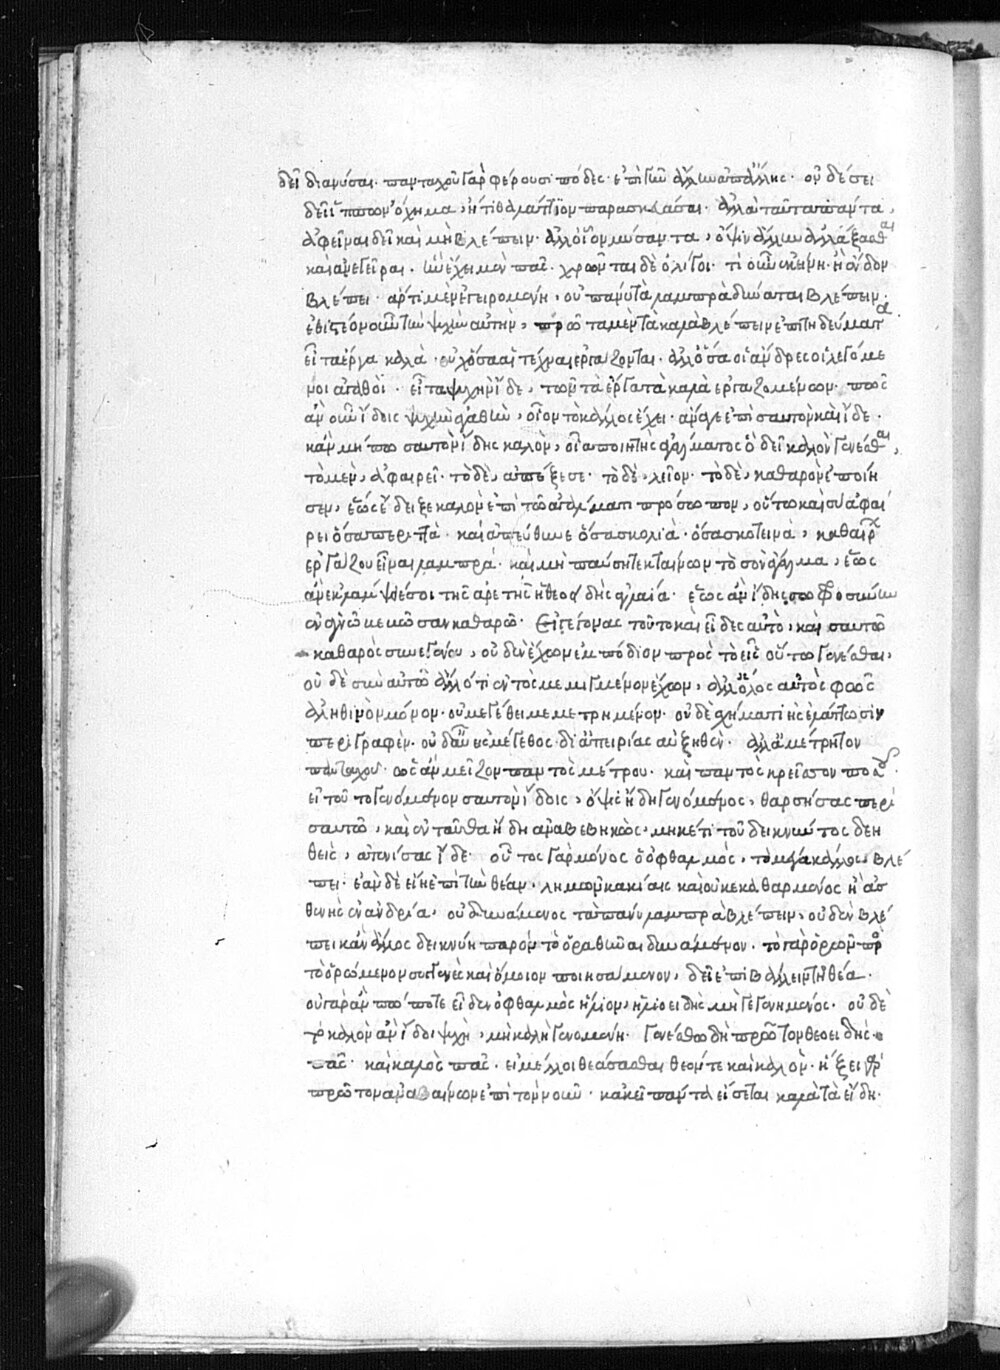 δεῖ διανύσαι· πανταχοῦ γὰρ φέρουσι πόδες ἐπὶ γῆν ἄλλην ἀπ' ἄλλης· οὐδέ σε
δεῖ ἵππων ὄχημα, ἤ τι θαλάττιον παρασκευάσαι· ἀλλὰ ταῦτα πάντα,
ἀφεῖναι δεῖ καὶ μὴ βλέπειν· ἀλλ' οἷον μύσαντα, ὄψιν ἄλλην ἀλλάξασθαι
καὶ ἀνεγεῖραι· ἣν ἔχει μὲν πᾶς· χρῶνται δὲ ὀλίγοι· τί οὖν ἐκείνη ἡ ἔνδον
βλέπει· ἄρτι μὲν ἐγειρομένη, οὐ πάνυ τὰ λαμπρὰ δύναται βλέπειν·
ἐθιστέον οὖν τὴν ψυχὴν αὐτὴν, πρῶτα μὲν τὰ καλὰ βλέπειν ἐπιτηδεύματα·
εἶτα ἔργα καλὰ· οὐχ ὅσα αἱ τέχναι ἐργάζονται· ἀλλ' ὅσα οἱ ἄνδρες οἱ λεγόμε
νοι ἀγαθοί· εἶτα ψυχὴν ἴδε, τῶν τὰ ἔργα τὰ καλὰ ἐργαζομένων· πῶς
ἂν οὖν ἴδοις ψυχὴν ἀγαθὴν, οἷον τὸ κάλλος ἔχει· ἄναγε ἐπὶ σαυτὸν καὶ ἴδε·
κἂν μήπω σαυτὸν ἴδης καλὸν, οἷα ποιητὴς ἀγάλματος ὃ δεῖ καλὸν γενέσθαι,
τὸ μὲν, ἀφαιρεῖ· τὸ δὲ, ἀπέξεσε· τὸ δὲ, λεῖον· τὸ δὲ, καθαρὸν ἐποίη
σεν, ἕως ἔδειξε καλὸν ἐπὶ τῶ ἀγάλματι πρόσωπον, οὕτω καὶ σὺ ἀφαί
ρει ὅσα περιττὰ· καὶ ἀπεύθυνε ὅσα σκολιὰ· ὅσα σκοτεινὰ, καθαίρων
ἐργάζου εἶναι λαμπρά· καὶ μὴ παύση τεκταίνων τὸ σὸν ἄγαλμα, ἕως
ἂν ἐκλάμψειέ σοι τῆς ἀρετῆς ἡ θεοειδὴς ἀγλαία· ἕως ἂν ἴδης σωφροσύνην
ἐν ἁγνῶ βεβῶσαν καθαρῶ· Εἰ γέγονας τοῦτο καὶ εἶδες αὐτὸ, καὶ σαυτῶ
καθαρὸς συνεγένου, οὐδὲν ἔχων ἐμπόδιον πρὸς τὸ εἷς οὕτω γενέσθαι,
οὐδὲ σὺν αὐτῶ ἄλλό τι ἐντὸς μεμιγμένον ἔχων, ἀλλ' ὅλος αὐτὸς φῶς
ἀληθινὸν μόνον· οὐ μεγέθει μεμετρημένον· οὐδὲ σχήματι εἰς ἐλάττωσιν
περιγραφέν· οὐδ' αὖ εἰς μέγεθος δι' ἀπειρίας αὐξηθέν· ἀλλ' ἀμέτρητον
πανταχοῦ· ὡς ἂν μεῖζον παντὸς μέτρου· καὶ παντὸς κρεῖσσον ποσοῦ·
εἰ τοῦτο γενόμενον σαυτὸν ἴδοις, ὄψις ἤδη γενόμενος, θαρσήσας περὶ
σαυτῶ, καὶ ἐνταῦθα ἤδη ἀναβεβηκὼς, μηκέτι τοῦ δεικνύντος δεη
θεὶς, ἀτενίσας ἴδε· οὗτος γὰρ μόνος ὁ ὀφθαλμὸς, τὸ μέγα κάλλος βλέ
πει· ἐὰν δὲ εἴη ἐπὶ τὴν θέαν, λημῶν κακίαις καὶ οὐ κεκαθαρμένος ἢ ἀσ
θενὴς ἀνανδρία, οὐ δυνάμενος τὰ πάνυ λαμπρὰ βλέπειν, οὐδὲν βλέ
πει κἂν ἄλλος δεικνύη παρὸν τὸ ὁραθῆναι δυνάμενον· τὸ γὰρ ὁρῶν πρὸς
τὸ ὁρώμενον συγγενὲς καὶ ὅμοιον ποιησάμενον, δεῖ ἐπιβάλλειν τῆ θέα·
οὐ γὰρ ἂν πώποτε εἶδεν ὀφθαλμὸς ἥλιον, ἡλιοειδὴς μὴ γεγενημένος· οὐδὲ
τὸ καλὸν ἂν ἴδοι ψυχὴ, μὴ καλὴ γενομένη· γενέσθω δὴ πρῶτον θεοειδὴς
πᾶς· καὶ καλὸς πᾶς· εἰ μέλλοι θεάσασθαι θεόν τε καὶ καλὸν· ἥξει γὰρ
πρῶτον ἀναβαίνων ἐπὶ τὸν νοῦν· κἀκεῖ πάντα εἴσεται καλὰ τὰ εἴδη·